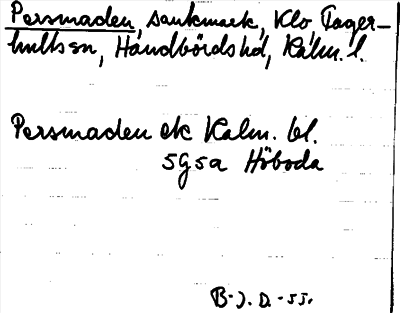 Persmaden, sankmark, Klo, Fager-
hults sn, Handbörds hd, Kalm. l.
Persmaden ek Kalm. bl.
5G5a Höboda
B-J. D. -55.